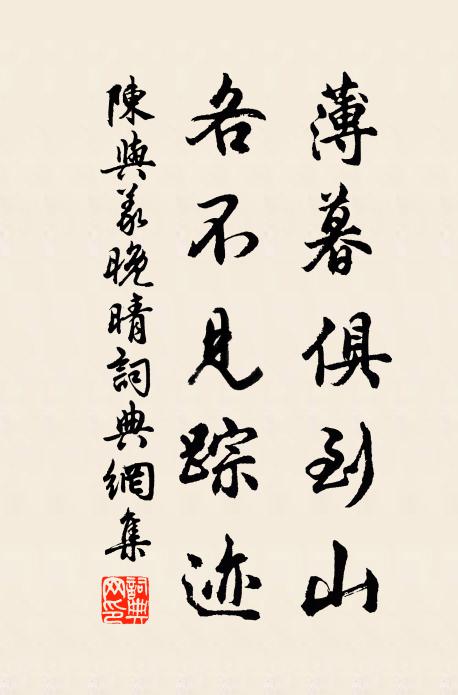 薄暮俱到山
各不見踪迹
陳與義晚晴詞典網集
詞典网印